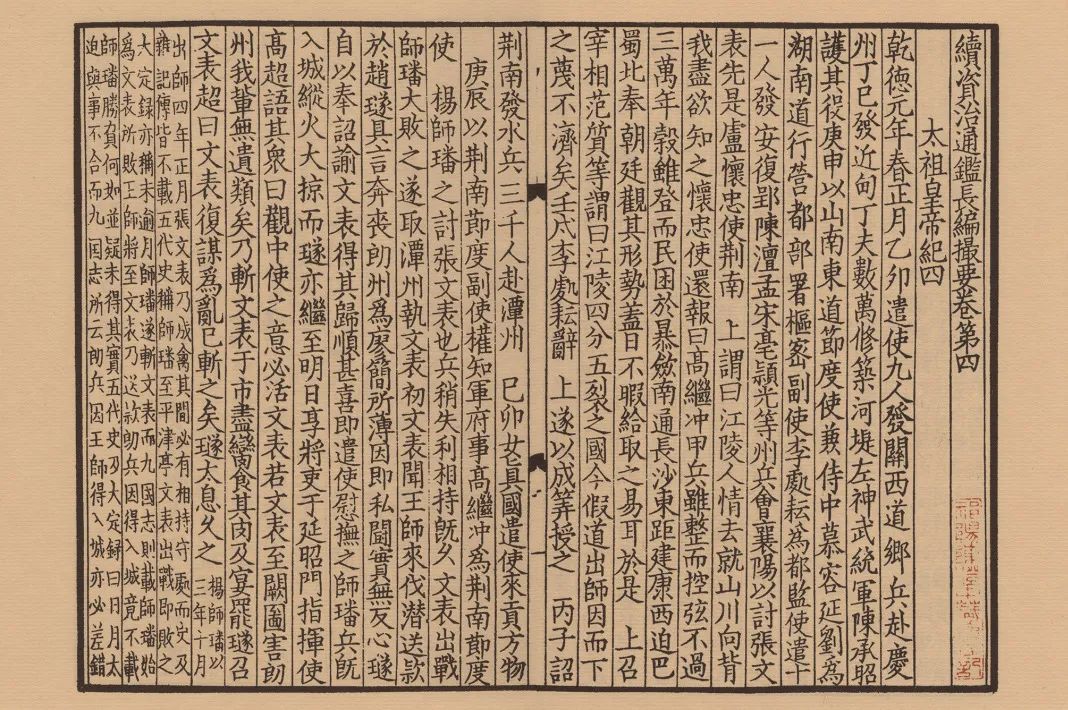 續資治通鑑長編撮要卷第四
太祖皇帝紀四
乾德元年春正月乙卯遣使九人發關西道鄉兵赴慶
州丁巳發近甸丁夫數萬修築河堤左神武統軍陳承昭
護其役庚申以山南東道節度使兼侍中慕容延劉爲
湖南道行營都部署樞密副使李處耘爲都監使遣十
一人發安復郢陳澶孟宋亳潁光等州兵會襄陽以討張文
表先是盧懷忠使荆南 上謂曰江陵人情去就山川向背
我盡欲知之懷忠使還報曰髙繼冲甲兵雖整而控弦不過
三萬年榖雖登而民困於暴斂南通長沙東距建康西迫巴
蜀北奉朝廷觀其形勢蓋日不暇給取之易耳於是 上召
宰相范質等謂曰江陵四分五裂之國今假道出師因而下
之蔑不濟矣壬戌李處耘辭 上遂以成筭授之 丙子詔
荆南發水兵三千人赴潭州 己卯女真國遣使來貢方物
庚辰以荆南節度副使權知軍府事髙繼冲爲荆南節度
使 楊師璠之討張文表也兵稍失利相持旣久文表出戰
師璠大敗之遂取潭州執文表初文表聞王師來伐潜送款
於趙璲具言奔喪朗州爲廖簡所薄因即私鬬實無反心璲
自以奉詔諭文表得其歸順甚喜即遣使慰撫之師璠兵旣
入城縱火大掠而璲亦繼至明日享將吏于延昭門指揮使
髙超語其衆曰觀中使之意必活文表若文表至闕圖害朗
州我輩無遺類矣乃斬文表于市盡臠食其肉及宴罷璲召
文表超曰文表復謀爲亂已斬之矣璲太息久之 楊師璠以三年十月
出師四年正月張文表乃成禽其間必有相持守處而史及
雜記傳皆不載五代史稱師璠至平津亭文表出戰即敗之
大定録亦稱未逾月師璠遂斬文表而九國志則載師璠始
爲文表所敗王師將至文表乃送款朗兵因得入城竟不載
師璠勝負何如並疑未得其實五代史及大定録曰月太
迫與事不合而九國志所云朗兵因王師得入城亦必差錯